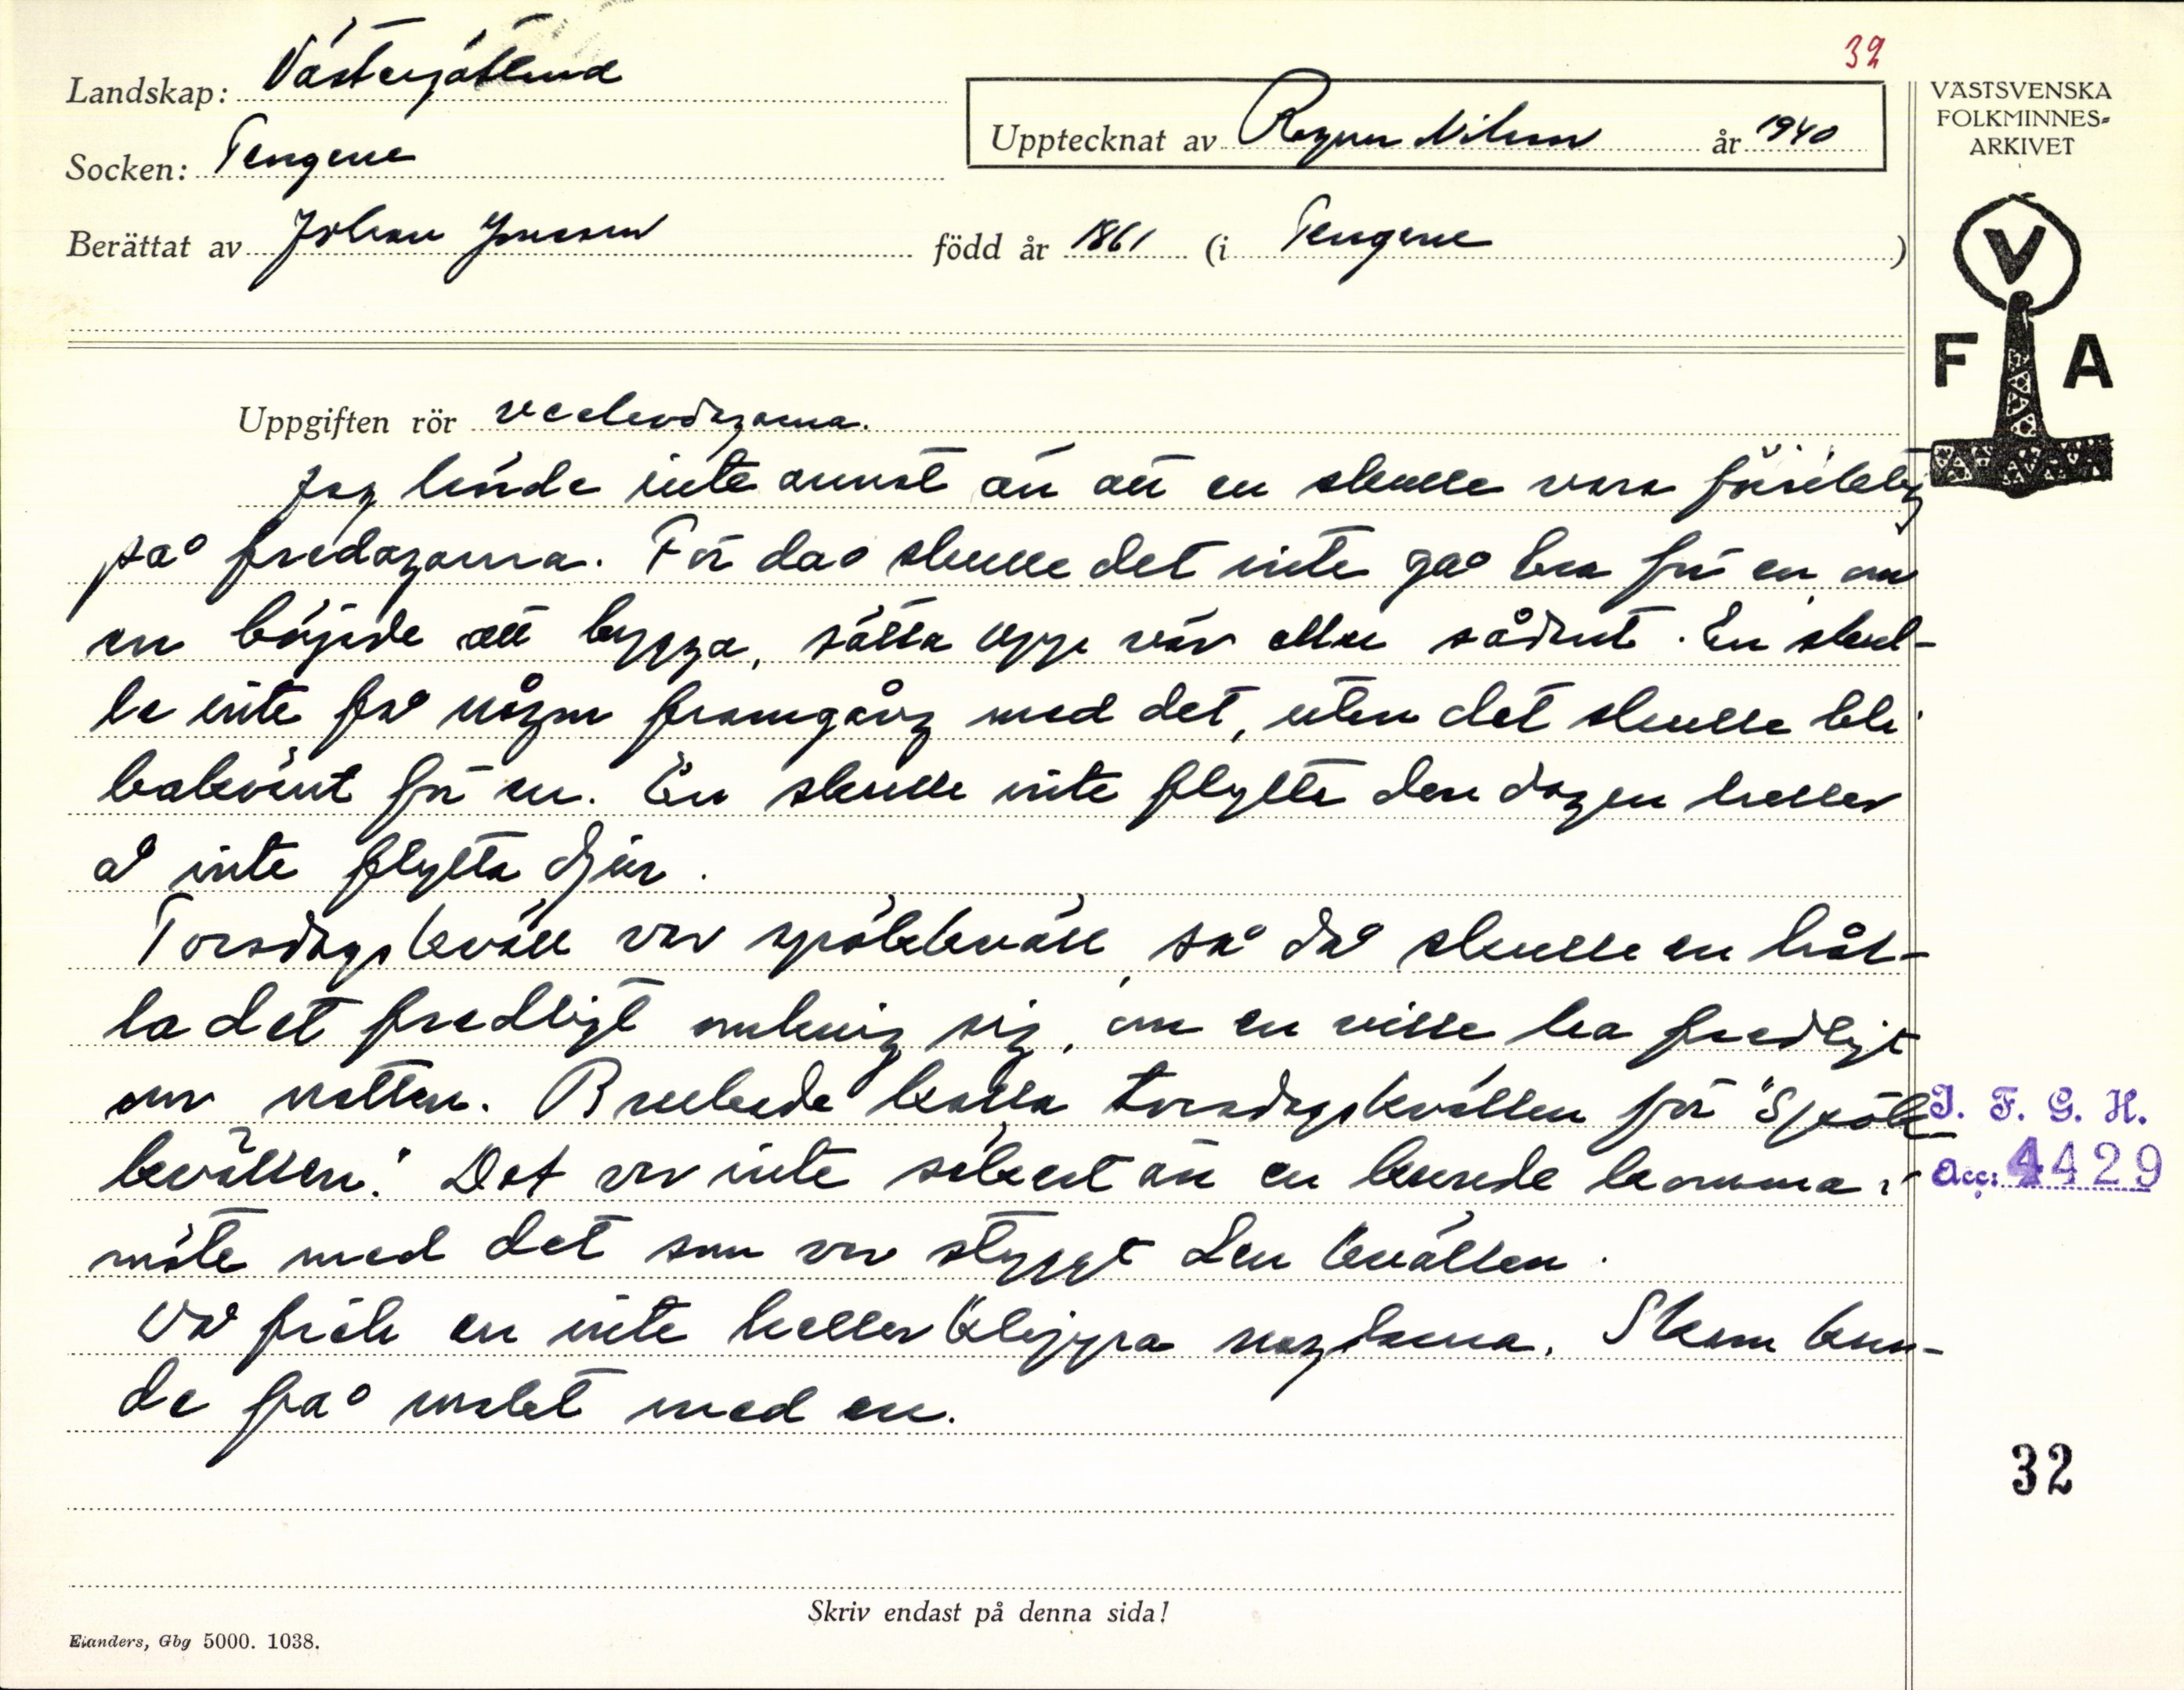 32
Landskap: Västergötland
Socken: Tengene
Upptecknat av Ragnar Nilsson år 1940
Berättat av Johan Jonsson född år 1861 (i Tengene)
VÄSTSVENSKA
FOLKMINNES-
ARKIVET
V
F A
Uppgiften rör veckodagarna.
Jag hörde inte annat än att en skulle vara försiktig
på fredagarna. För då skulle det inte gå bra för en om
en böjde att bygga, sätta upp väv eller sådant. En skul-
le inte få någon framgång med det, utan det skulle bli
bakvänt för en. En skulle inte flytta den dagen heller
å inte flytta djur.
Torsdagskväll var spökkväll, så då skulle en hål-
la det fredligt omkring sig, om en ville ha fredligt
om natten. Brukade kalla torsdagskvällen för "Spök-
kvällen." Det var inte säkert än en kunde komma i
möte med det som var styggt den kvällen.
Då fick en inte heller klippa naglarna. Skam kun-
de få makt med en.
I. F. G. H.
Acc: 4429
32
Skriv endast på denna sida!
Elanders, Gbg 5000. 1038.